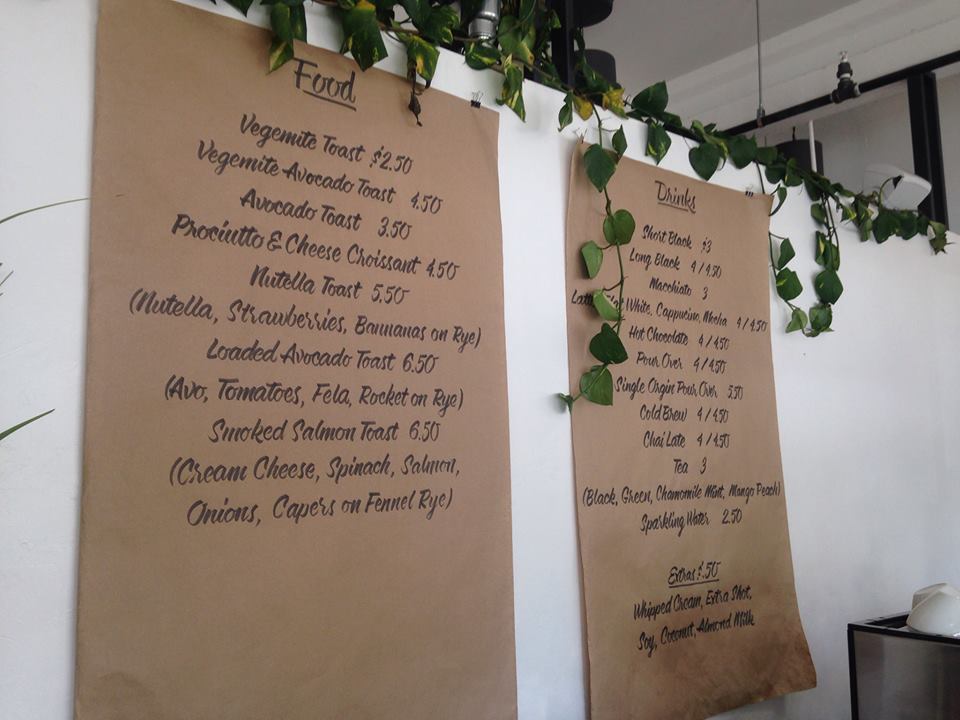 Food
Vegemite Toast $2.50
Vegemite Avocado Toast 4.50
Avocado Toast 3.50
Prociutto & Cheese Croissant 4.50
Nutella Toast 5.50
(Nutella, Strawberries, Bannanas on Rye)
Loaded Avocado Toast 6.50
(Avo, Tomatoes, Feta, Rocket on Rye)
Smoked Salmon Toast 6.50
(Cream Cheese, Spinach, Salmon,
Onions, Capers on Fennel Rye)
Drinks
Short Black $3
Long Black 4 / 4.50
Macchiato 3
White, Cappucino, Mocha 4 / 4.50
Hot Chocolate 4 / 4.50
Pour Over 4 / 4.50
Single Orgin Pour Over 5.50
Cold Brew 4 / 4.50
Chai Late 4 / 4.50
Tea 3
(Black, Green, Chamomile Mint, Mango Peach)
Sparkling Water 2.50
Extras $.50
Whipped Cream, Extra Shot,
Soy, Coconut, Almond Milk